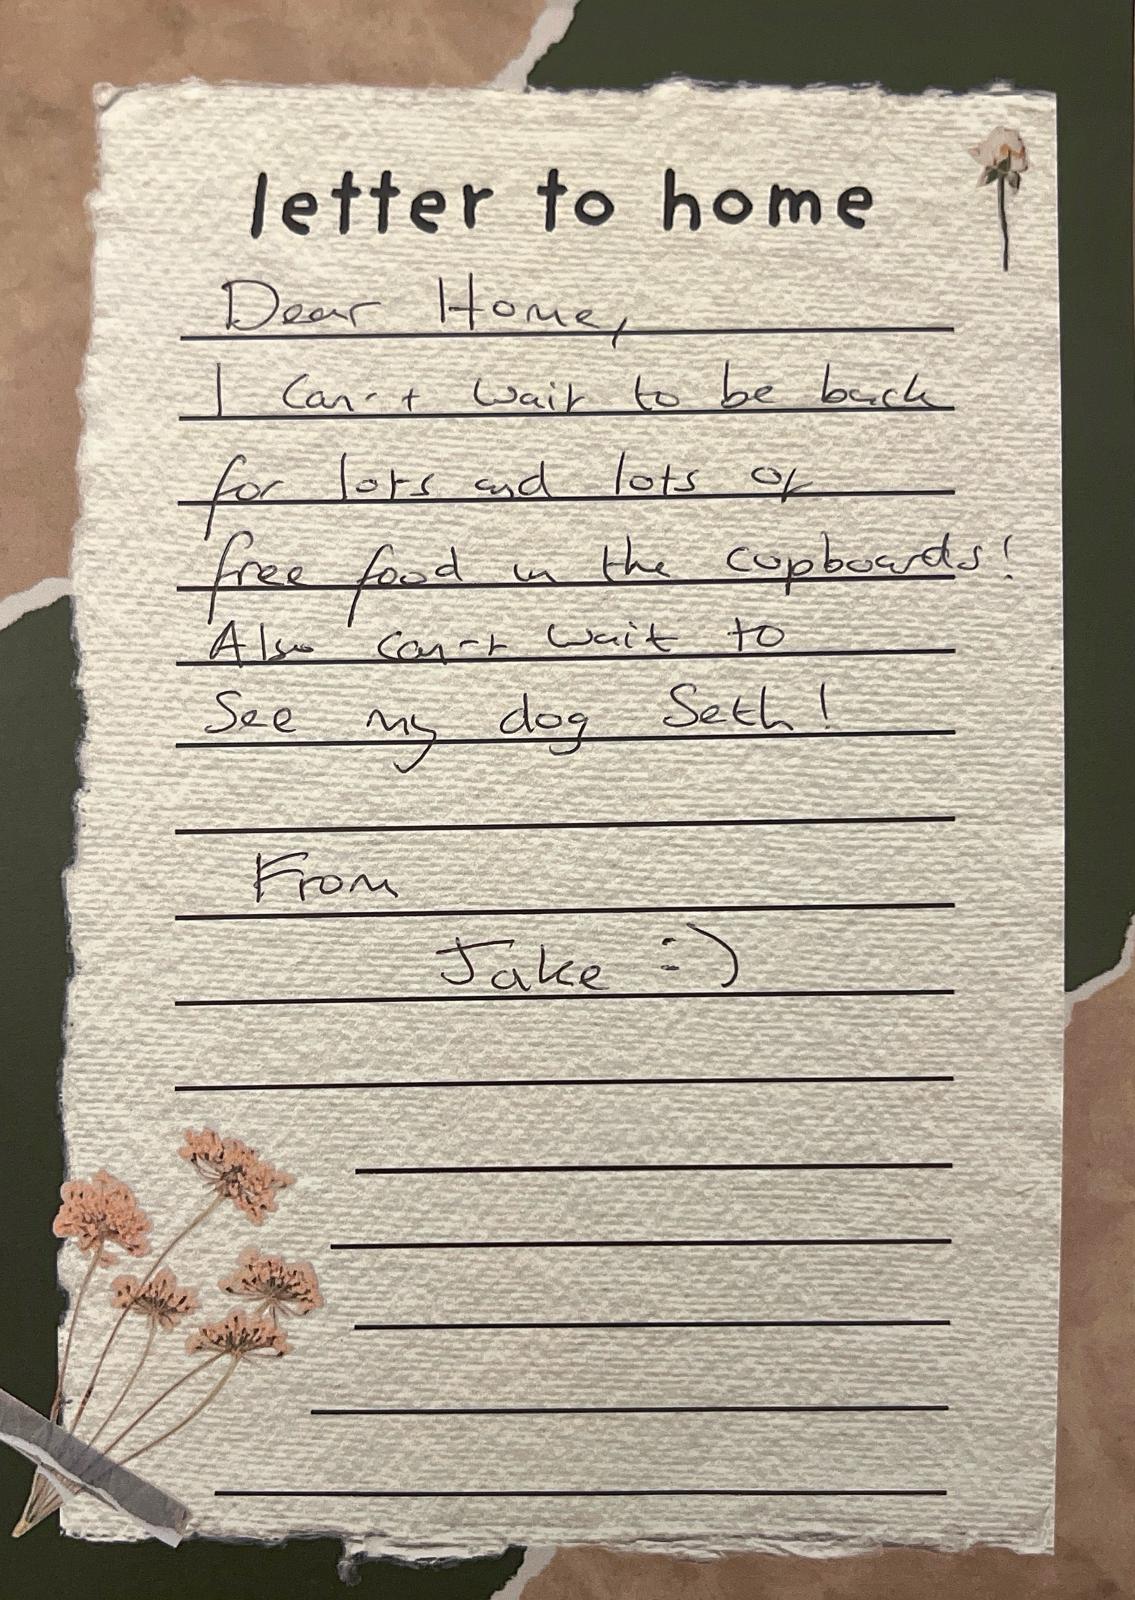 letter to home
Dear Home,
I can't wait to be back
for lots and lots of
free food in the cupboards!
Also can't wait to
See my dog Seth!
From
Jake :)